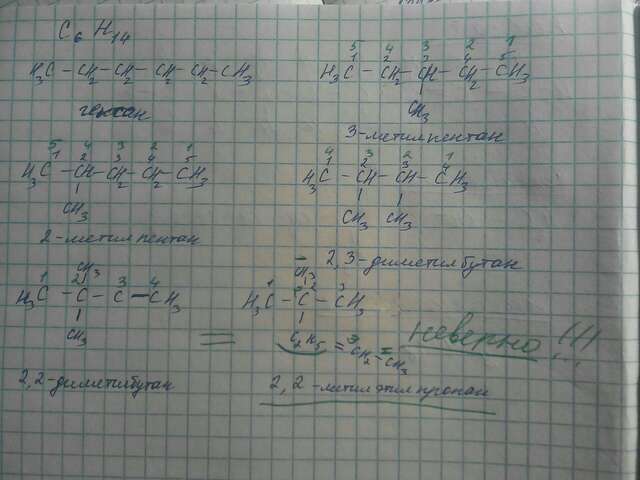 C6 H14
H3C - CH2 - CH2 - CH2 - CH2 - CH3
гексан
5 4 3 2 1
1 2 3 4 5
H3C - CH2 - CH - CH2 - CH3
CH3
3-метилпентан
5 4 3 2 1
1 2 3 4 5
H3C - CH - CH2 - CH2 - CH3
CH3
2-метилпентан
4 3 2 1
1 2 3 4
H3C - CH - CH - CH3
CH3 CH3
2,3-диметилбутан
CH3
1 2 3 4
H3C - C - C - CH3
CH3
2,2-диметилбутан
=
CH3
1 2 3
H3C - C - CH3
C2H5 = CH2 - CH3
2,2-метилэтилпропан
неверно!!!